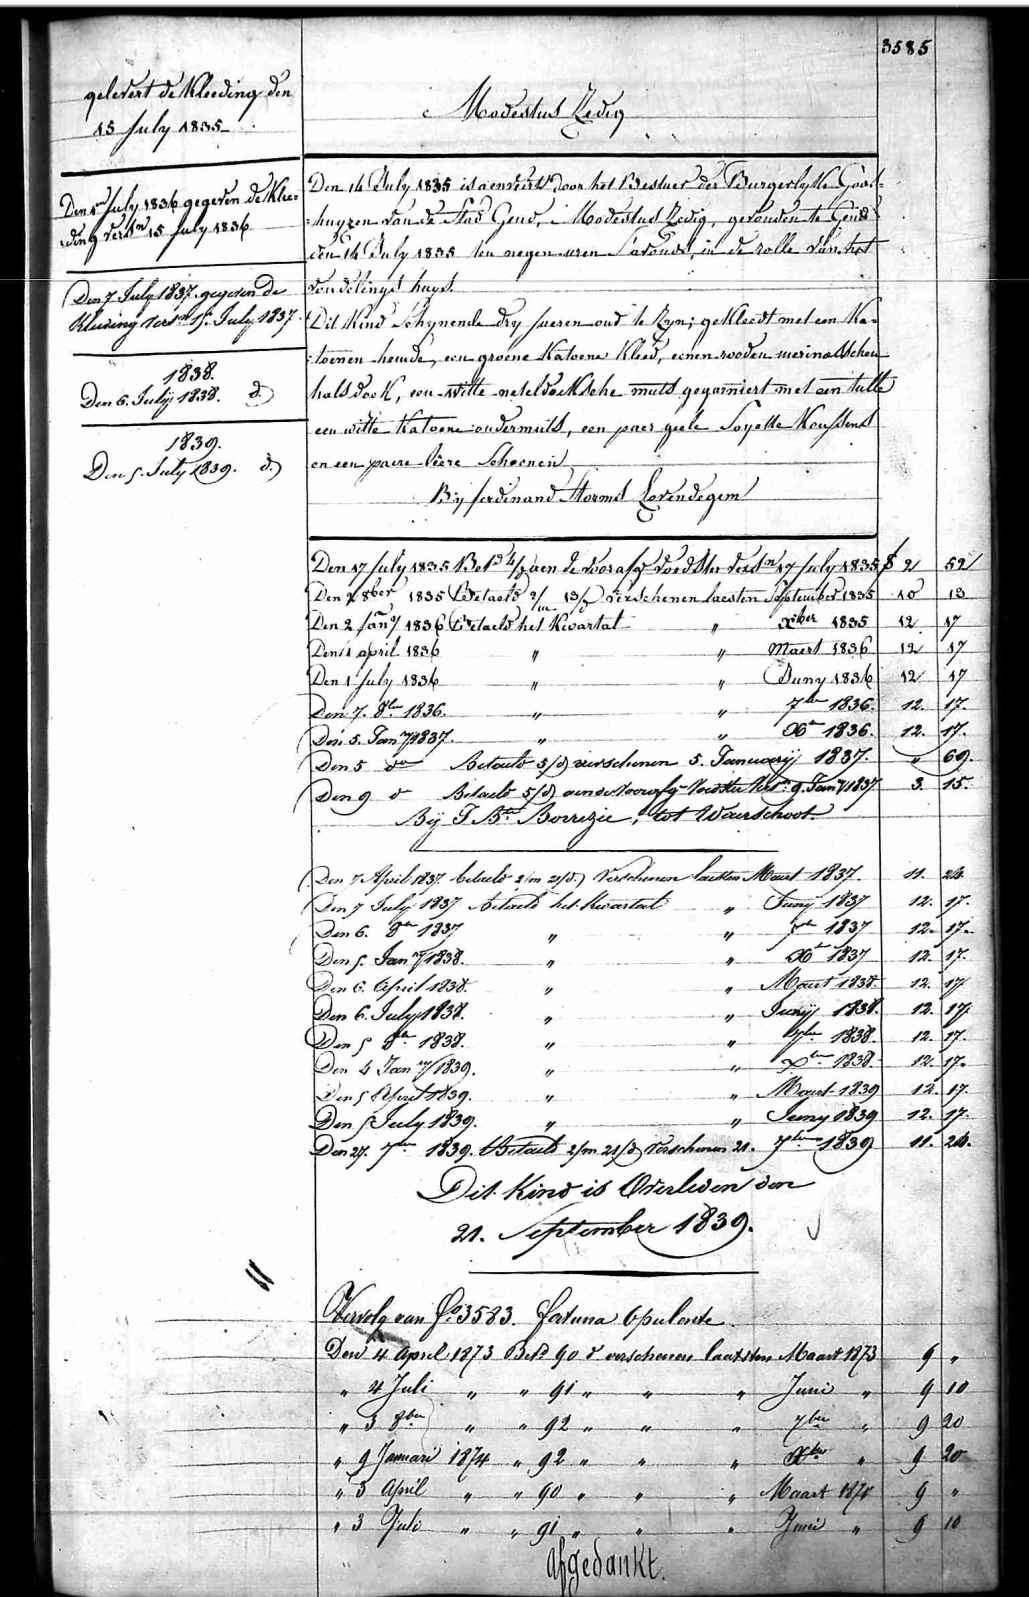 3585
gelevert de Kleeding den
15 July 1835
Den 1en July 1836 gegeven de Klee-
ding versn 15 July 1836
Den 7 July 1837 gegeven de
Kleeding versn 15 July 1837
1838.
Den 6. Julÿ 1838. d.)
1839.
Den 5. July 1839. d.)
Modestus Zedig
Den 14 July 1835 is aenveird door het Bestuer der Burgerlyke Gods-
huyzen van de Stad Gend, Modestus Zedig, gevonden te Gend
den 14 July 1835 ten negen uren S'avonds, in de rolle van het
vondelings huys.
Dit Kind Schynende dry jaeren oud te Zyn; gekleedt met een Ka-
toenen hemde, een groene Katoene Kleed, eenen rooden merinosschen
halsdoek, een witte neteldoeksche muts gegarniert met een tulle
een witte Katoene ondermuts, een paer geele Soyette Koussens
en een paere leere Schoenen
Bij ferdinand Storms Lovendegem
Den 17 July 1835 Betd 4/d aen de voorafg voedster versn 17 July 1835 f 2 52
Den 2 8ber 1835 Betaeld 2/m 13/d verschenen laesten September 1835 10 13
Den 2 Jany 1836 Betaeld het Kwartal " Xber 1835 12 17
Den 1 april 1836 " " Maert 1836 12 17
Den 1 July 1836 " " Juny 1836 12 17
Den 7. 8ber 1836. " " 7ber 1836. 12. 17.
Den 5. Jany 1837. " " Xber 1836. 12. 17.
Den 5 do Betaeld 5/d verschenen 5. Januarÿ 1837. " 69.
Den 9 do Betaeld 5/d aen de voorafg Voedster Versn 9. Jany 1837 3. 15.
Bÿ J. Bte Borrezie, tot Waerschoot.
Den 7 April 1837. betaeld 2/m 21/d.) Verschenen laesten Maert 1837. 11. 24.
Den 7 July 1837 Betaeld het Kwartaal " Juny 1837 12. 17.
Den 6. 8ber 1837 " " 7ber 1837 12. 17.
Den 5. Jany 1838. " " Xber 1837 12. 17.
Den 6. April 1838. " " Maert 1838. 12. 17.
Den 6. July 1838. " " Junÿ 1838. 12. 17.
Den 5 8ber 1838. " " 7ber 1838. 12. 17.
Den 4 Jany 1839. " " Xber 1838. 12. 17.
Den 5 April 1839. " " Maert 1839 12. 17.
Den 5 July 1839. " " Juny 1839 12. 17.
Den 27. 7ber 1839. Betaeld 2/m 21/d verschenen 21. 7ber 1839 11. 24.
Dit Kind is Overleden den
21. September 1839.
Vervolg van fo 3583. Fortuna Opulente.
Den 4 April 1873 Betd 90 d verschenen laatsten Maart 1873 9 "
" 4 Juli " " 91 " " " Juni " 9 10
" 3 8ber " " 92 " " " 7ber " 9 20
" 9 Januari 1874 " 92 " " " Xber " 9 20
" 3 April " " 90 " " " Maart 1874 9 "
" 3 Juli " " 91 " " " Juni " 9 10
Afgedankt.